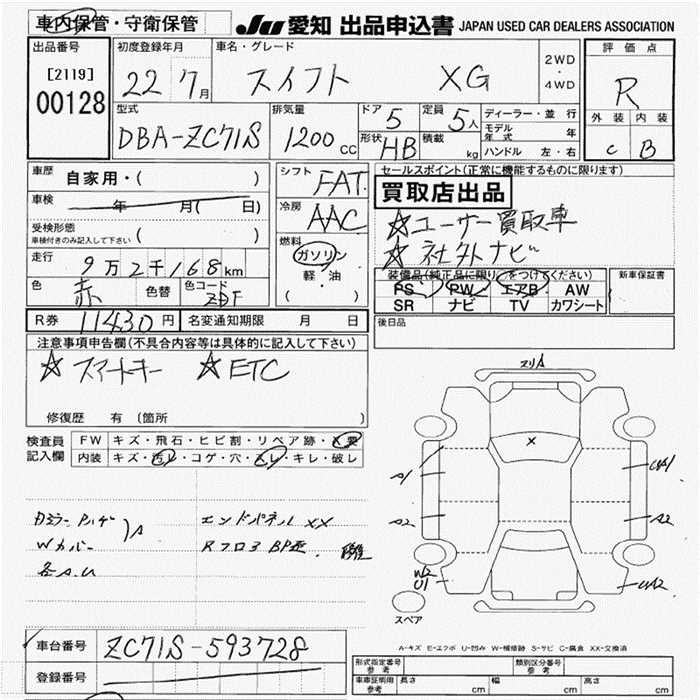 車内保管・守衛保管
JU 愛知 出品申込書 JAPAN USED CAR DEALERS ASSOCIATION
出品番号
[2119]
00128
初度登録年月
22 7月
車名・グレード
スイフト XG
2WD
・
4WD
評価点
R
外装 内装
C B
型式
DBA-ZC71S
排気量
1200 CC
ドア 5
形状 HB
定員 5人
積載 kg
ディーラー・並行
モデル年式 年
ハンドル 左・右
車歴 自家用・( )
車検 年 月( 日)
受検形態
車検付きのみ記入して下さい ( )
走行 9万2千168km
色 赤 色替 色コード ZBF
R券 11430円 名変通知期限 月 日
シフト FAT
冷房 AAC
燃料
ガソリン
軽・油
( )
セールスポイント(正常に機能するものに限ります)
買取店出品
☆ユーザー買取車
☆社外ナビ
装備品(純正品に限り○をつけてください)
PS PW エアB AW
SR ナビ TV カワシート
新車保証書
後日品
注意事項申告欄(不具合内容等は具体的に記入して下さい)
☆スマートキー ☆ETC
修復歴 有 (箇所 )
検査員記入欄
FW キズ・飛石・ヒビ割・リペア跡・X要
内装 キズ・汚レ・コゲ・穴・スレ・キレ・破レ
エンドパネルXX
Wカバー
各A.U
A
A1
A2
W2
U1
UA1
A2
UA2
X
スペア
A-キズ E-エクボ U-凹み W-補修跡 S-サビ C-腐食 XX-交換済
車台番号 ZC71S-593728
登録番号
形式指定番号 参考
類別区分番号 参考
車庫証明用 参考
長さ cm
幅 cm
高さ cm